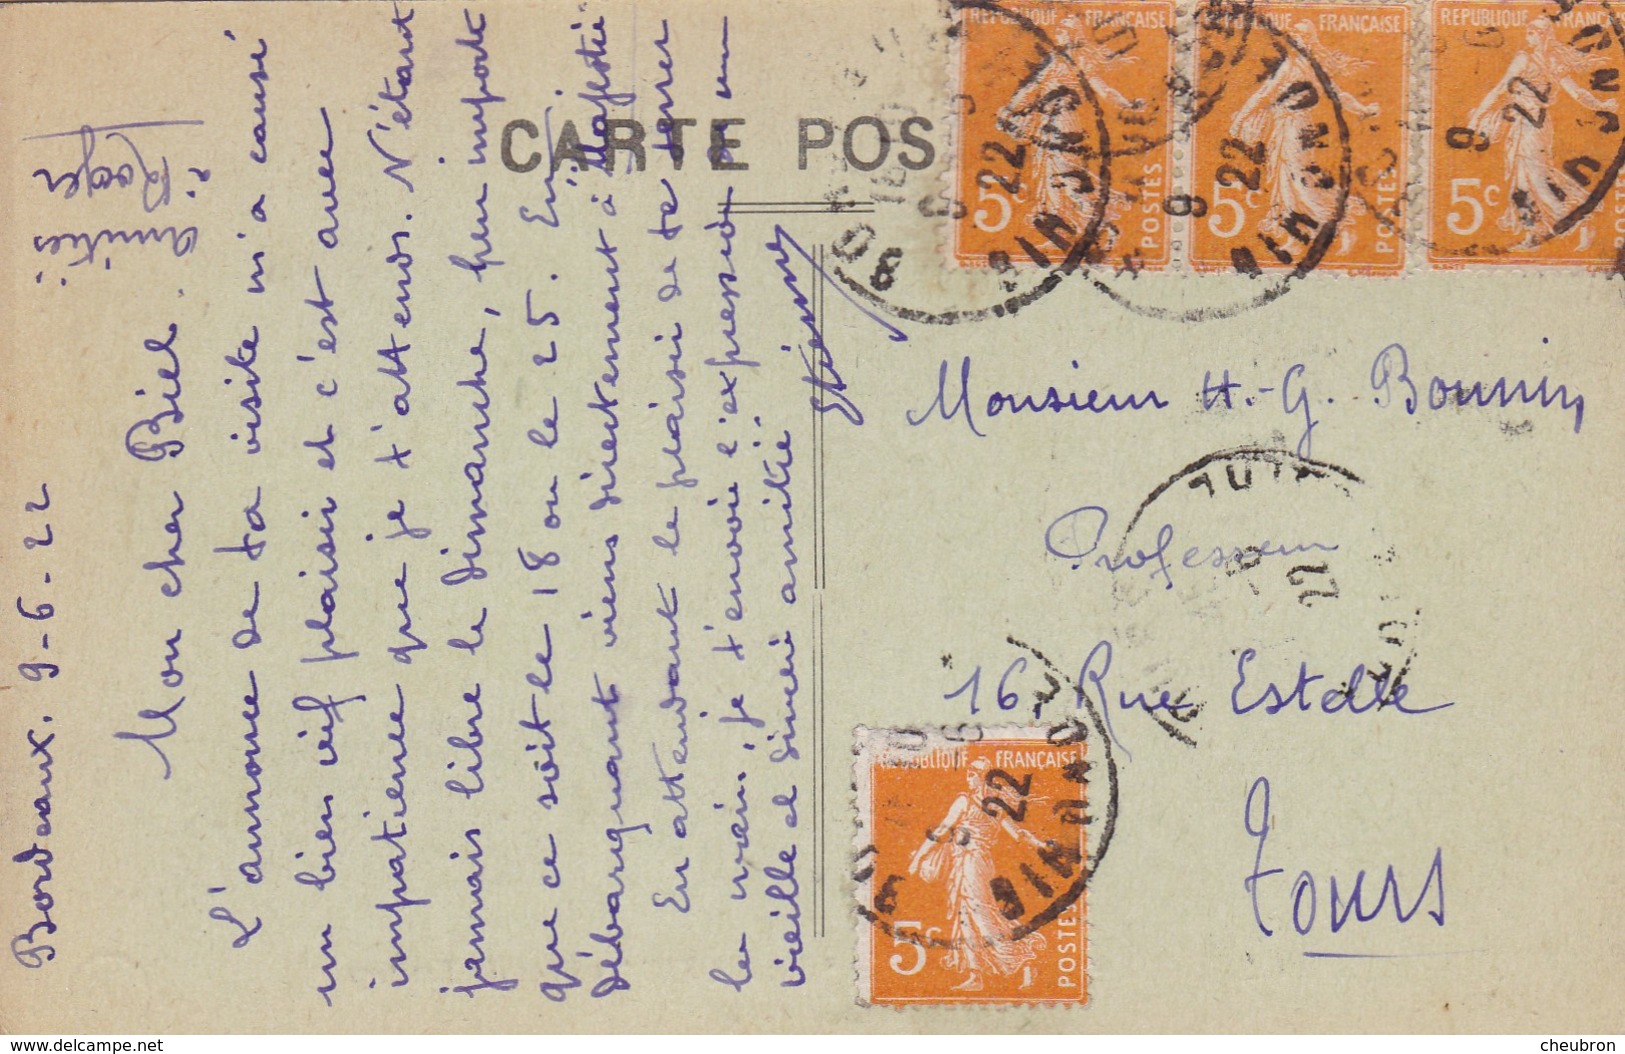 Bordeaux. 9-6-22
Mon cher Biel.
L'annonce de ta visite m'a causé
un bien vif plaisir et c'est avec
impatience que je t'attends. N'étant
jamais libre le dimanche, peu importe
que ce soit le 18 ou le 25. En
débarquant viens directement à "Majestic"
En attendant le plaisir de te serrer
la main, je t'envoie l'expression d'un
vieille et sincère amitié.
Etienne
Amitiés
Roger
CARTE POS
REPUBLIQUE FRANÇAISE
5c
POSTES
REPUBLIQUE FRANÇAISE
5c
POSTES
REPUBLIQUE FRANÇAISE
5c
POSTES
9
22
Monsieur H.-G. Bonnin,
Professeur
16 Rue Estelle
Tours
REPUBLIQUE FRANÇAISE
5c
POSTES
22
www.delcampe.net
cheubron